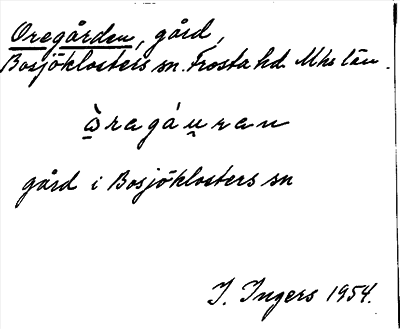 Oregården, gård,
Bosjöklosters sn. Frosta hd. Mhs län.
ə̀ragáu̯ran
gård i Bosjöklosters sn
I. Ingers 1954.